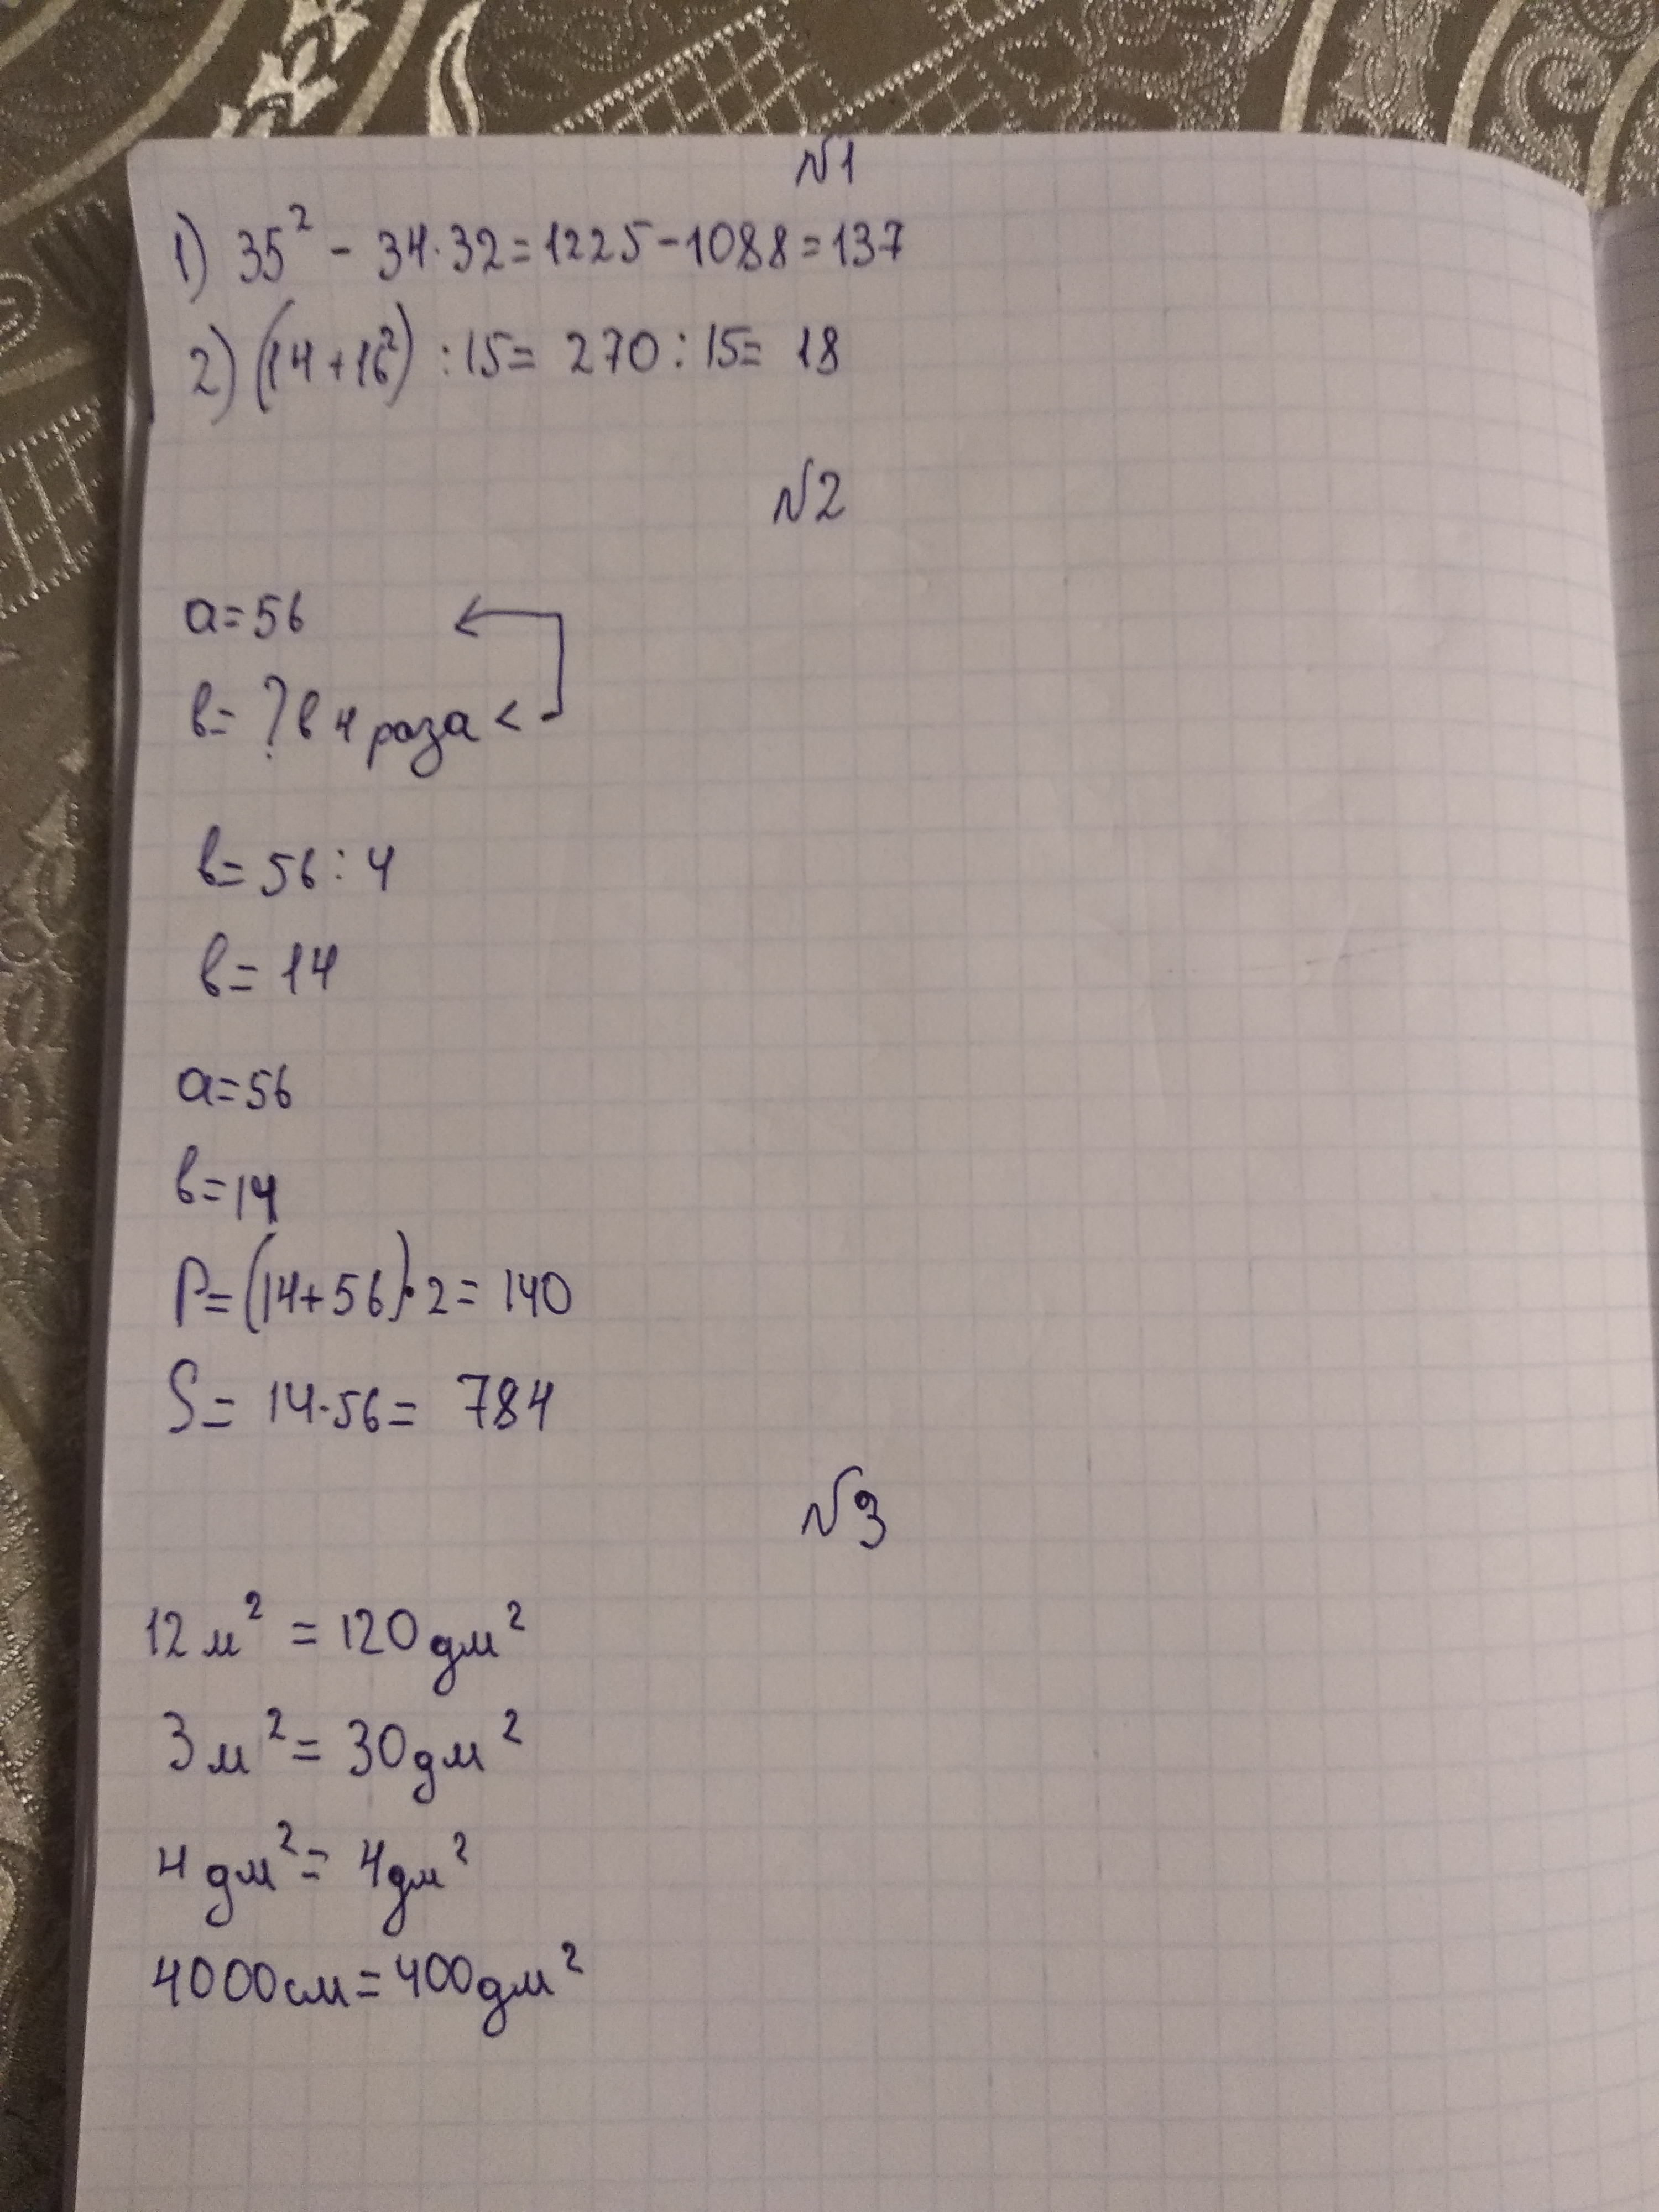 №1
1) 35² - 34·32=1225-1088=137
2) (14+16²) :15= 270:15= 18
№2
a=56
в= ? в 4 раза <
в= 56:4
в= 14
a=56
в=14
P=(14+56)·2= 140
S= 14·56= 784
№3
12 м² = 120 дм²
3 м² = 30 дм²
4 дм² = 4 дм²
4000 см = 400 дм²